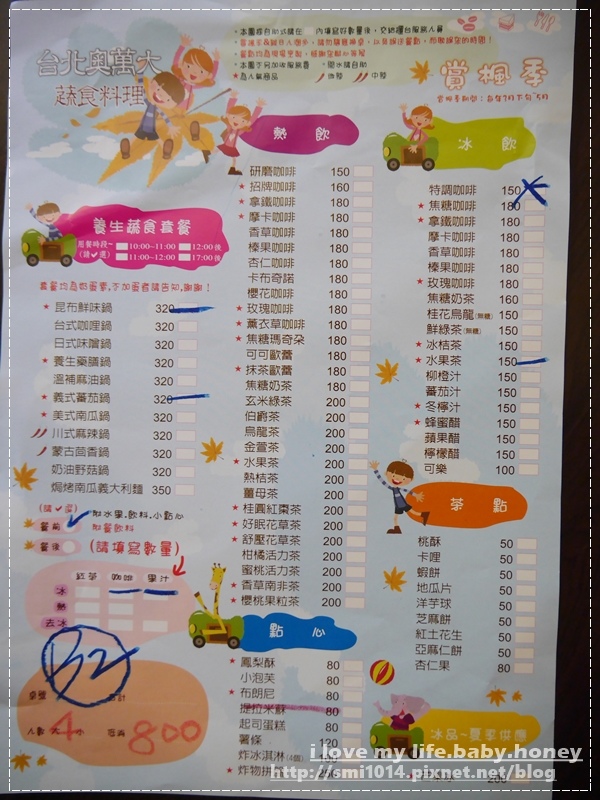 台北奧萬大
蔬食料理
・本園採自助式請在 內填寫好數量後,交給櫃台服務人員
★為人氣商品 小辣 中辣
賞楓季
養生蔬食套餐
用餐時段~ 10:00~11:00 12:00後
(請✓選) 11:00~12:00 17:00後
套餐均為奶蛋素,不加蛋者請告知,謝謝!
★ 昆布鮮味鍋 320
台式咖哩鍋 320
日式味噌鍋 320
★ 養生藥膳鍋 320
溫補麻油鍋 320
★ 義式蕃茄鍋 320
★ 美式南瓜鍋 320
川式麻辣鍋 320
蒙古茴香鍋 320
奶油野菇鍋 320
焗烤南瓜義大利麵 350
(請✓選) 附水果.飲料.小點心
餐前 附餐飲料
餐後 (請填寫數量)
紅茶 咖啡 果汁
冰
熱
去冰
B2
桌號 合計
人數 大4小 低消 800
熱飲
研磨咖啡 150
★ 招牌咖啡 160
★ 拿鐵咖啡 180
★ 摩卡咖啡 180
香草咖啡 180
榛果咖啡 180
杏仁咖啡 180
卡布奇諾 180
櫻花咖啡 180
★ 玫瑰咖啡 180
★ 薰衣草咖啡 180
★ 焦糖瑪奇朵 180
可可歐蕾 180
★ 抹茶歐蕾 180
焦糖奶茶 180
玄米綠茶 200
伯爵茶 200
烏龍茶 200
金萱茶 200
★ 水果茶 200
熱桔茶 200
薑母茶 200
★ 桂圓紅棗茶 200
★ 好眠花草茶 200
★ 舒壓花草茶 200
柑橘活力茶 200
蜜桃活力茶 200
★ 香草南非茶 200
★ 櫻桃果粒茶 200
點心
★ 鳳梨酥 80
小泡芙 80
★ 布朗尼 80
提拉米蘇 80
起司蛋糕 80
薯條 120
炸冰淇淋(4個)
★ 炸物拼
冰飲
特調咖啡 150
★ 焦糖咖啡 180
★ 拿鐵咖啡 180
摩卡咖啡 180
香草咖啡 180
榛果咖啡 180
★ 玫瑰咖啡 180
焦糖奶茶 160
桂花烏龍(無糖) 150
鮮綠茶(無糖) 150
★ 冰桔茶 150
★ 水果茶 150
柳橙汁 150
蕃茄汁 150
★ 冬檸汁 150
★ 蜂蜜醋 150
蘋果醋 150
檸檬醋 150
可樂 100
茶點
桃酥 50
卡哩 50
蝦餅 50
地瓜片 50
洋芋球 50
芝麻餅 50
紅土花生 50
亞麻仁餅 50
杏仁果 80
冰品~夏季供應
200
i love my life.baby.honey
http://smi1014.pixnet.net/blog